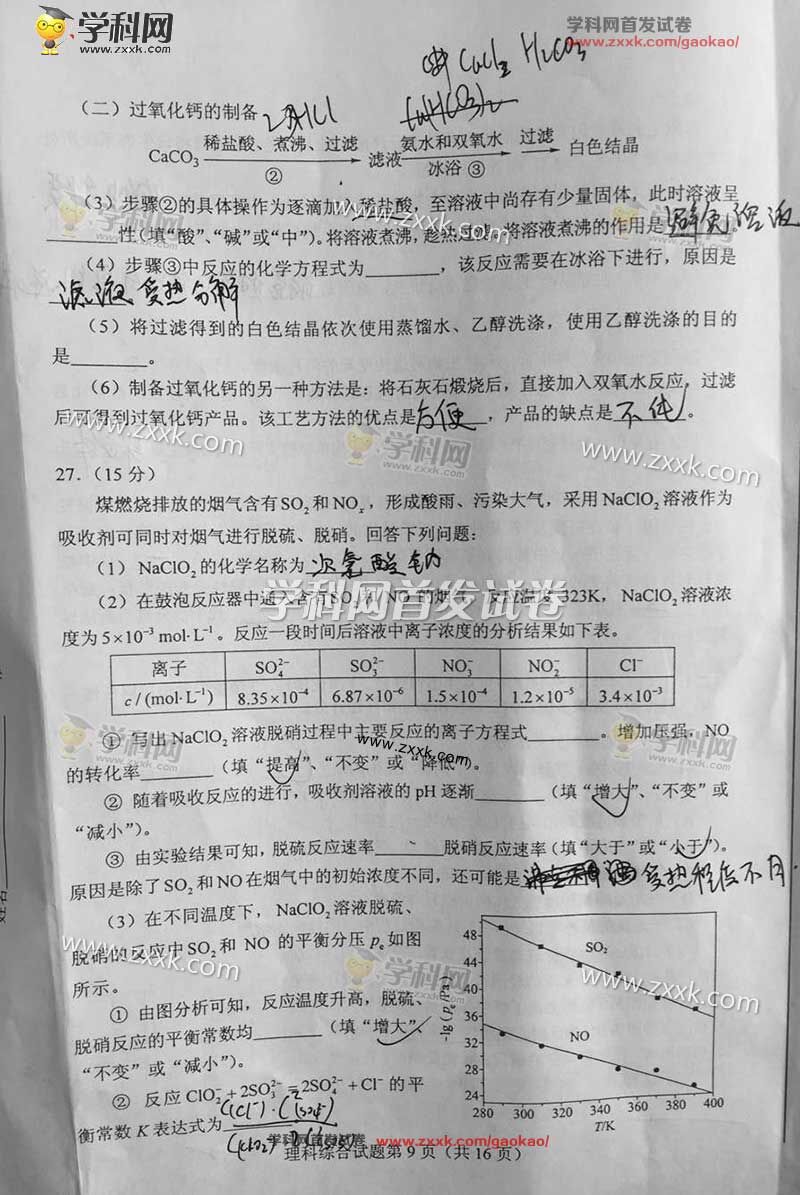 学科网
www.zxxk.com
学科网首发试卷
www.zxxk.com/gaokao/
CaCl₂ H₂CO₃
（二）过氧化钙的制备 2HCl
CaCO₃ 稀盐酸、煮沸、过滤 ② 滤液 氨水和双氧水 冰浴 ③ 过滤 白色结晶
（3）步骤②的具体操作为逐滴加入稀盐酸，至溶液中尚存有少量固体，此时溶液呈
______性（填“酸”、“碱”或“中”）。将溶液煮沸，趁热过滤。将溶液煮沸的作用是避免溶液
（4）步骤③中反应的化学方程式为________，该反应需要在冰浴下进行，原因是
滤液受热分解
（5）将过滤得到的白色结晶依次使用蒸馏水、乙醇洗涤，使用乙醇洗涤的目的
是________。
（6）制备过氧化钙的另一种方法是：将石灰石煅烧后，直接加入双氧水反应，过滤
后可得到过氧化钙产品。该工艺方法的优点是方便，产品的缺点是不纯。
27.（15 分）
煤燃烧排放的烟气含有 SO₂ 和 NOₓ，形成酸雨、污染大气，采用 NaClO₂ 溶液作为
吸收剂可同时对烟气进行脱硫、脱硝。回答下列问题：
（1）NaClO₂ 的化学名称为次氯酸钠
学科网首发试卷
（2）在鼓泡反应器中通入含有 SO₂ 和 NO 的烟气，反应温度 323K，NaClO₂ 溶液浓
度为 5×10⁻³ mol·L⁻¹。反应一段时间后溶液中离子浓度的分析结果如下表。
离子 SO₄²⁻ SO₃²⁻ NO₃⁻ NO₂⁻ Cl⁻
c/(mol·L⁻¹) 8.35×10⁻⁴ 6.87×10⁻⁶ 1.5×10⁻⁴ 1.2×10⁻⁵ 3.4×10⁻³
① 写出 NaClO₂ 溶液脱硝过程中主要反应的离子方程式________。增加压强，NO
的转化率________（填“提高”、“不变”或“降低”）。
② 随着吸收反应的进行，吸收剂溶液的 pH 逐渐________（填“增大”、“不变”或
“减小”）。
③ 由实验结果可知，脱硫反应速率________脱硝反应速率（填“大于”或“小于”）。
原因是除了 SO₂ 和 NO 在烟气中的初始浓度不同，还可能是受热程度不同.
（3）在不同温度下，NaClO₂ 溶液脱硫、
脱硝的反应中 SO₂ 和 NO 的平衡分压 pₑ 如图
所示。
① 由图分析可知，反应温度升高，脱硫、
脱硝反应的平衡常数均________（填“增大”、
“不变”或“减小”）。
② 反应 ClO₂⁻ + 2SO₃²⁻ = 2SO₄²⁻ + Cl⁻ 的平
衡常数 K 表达式为
-lg(pₑ/Pa)
48
44
40
36
32
28
24
SO₂
NO
280 300 320 340 360 380 400
T/K
学科网首发试卷 www.zxxk.com/gaokao/
理科综合试题第 9 页（共 16 页）
姓名